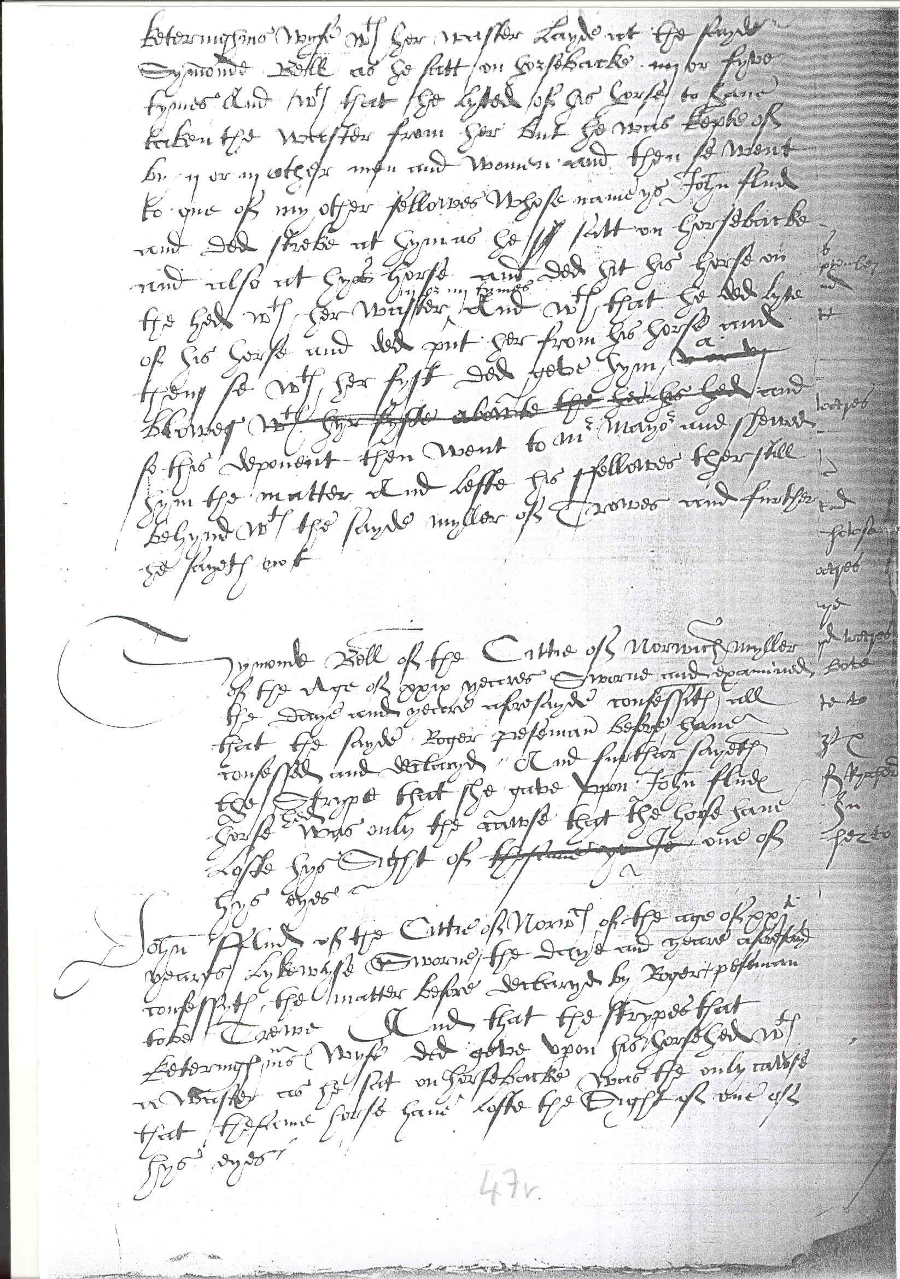 keteringhms wyfe wth her waster layde at the sayde
Symonde Bell as he satt on horsebacke iiij or fyve
tymes And wth that he lyted of his horse to have
taken the waster from her but he was kepte of
by ij or iij other men and women and then se went
to one of my other fellowes whose name ys John flud
and ded streke at hym as he satt on horsebacke
and also at hys horse and ded hit his horse on
iij or iiij tymes
the hed wth her waster And wth that he ded lyte
of his horse and ded put her from his horse and
then se wth her fyst ded geve hym a
blowes wth hyr fyste aboute the his hed and
so this deponent then went to mr Mayor and shewed
hym the matter And lefte his ffellowes ther still
behynd wth the sayde myller of Trowes and further
he sayeth not
Symonde Bell of the Cittie of Norwich myller
of the Age of xxix yeares Sworne and examined
the daye and yeare aforesayde confessith all
that the sayde Roger peseman before have
confessed and declaryd And furthar sayeth
the Strype that she gave upon John fludes
horse hed was only the cawse that the horse have
loste hys Sight of one of
hys eyes
John fflud of the Cittie of Norwch of the age of xxti
yeares lykewyse Sworne the daye and yeare aforesaid
confessith the matter before declaryd by Roger peseman
to be Trewe And that the strypes that
keteringhms wyfe ded geve upon his horse hed wth
a waster as he sat on horsebacke was the only cawse
that the same horse have loste the Sight of one of
hys eyes
47r.